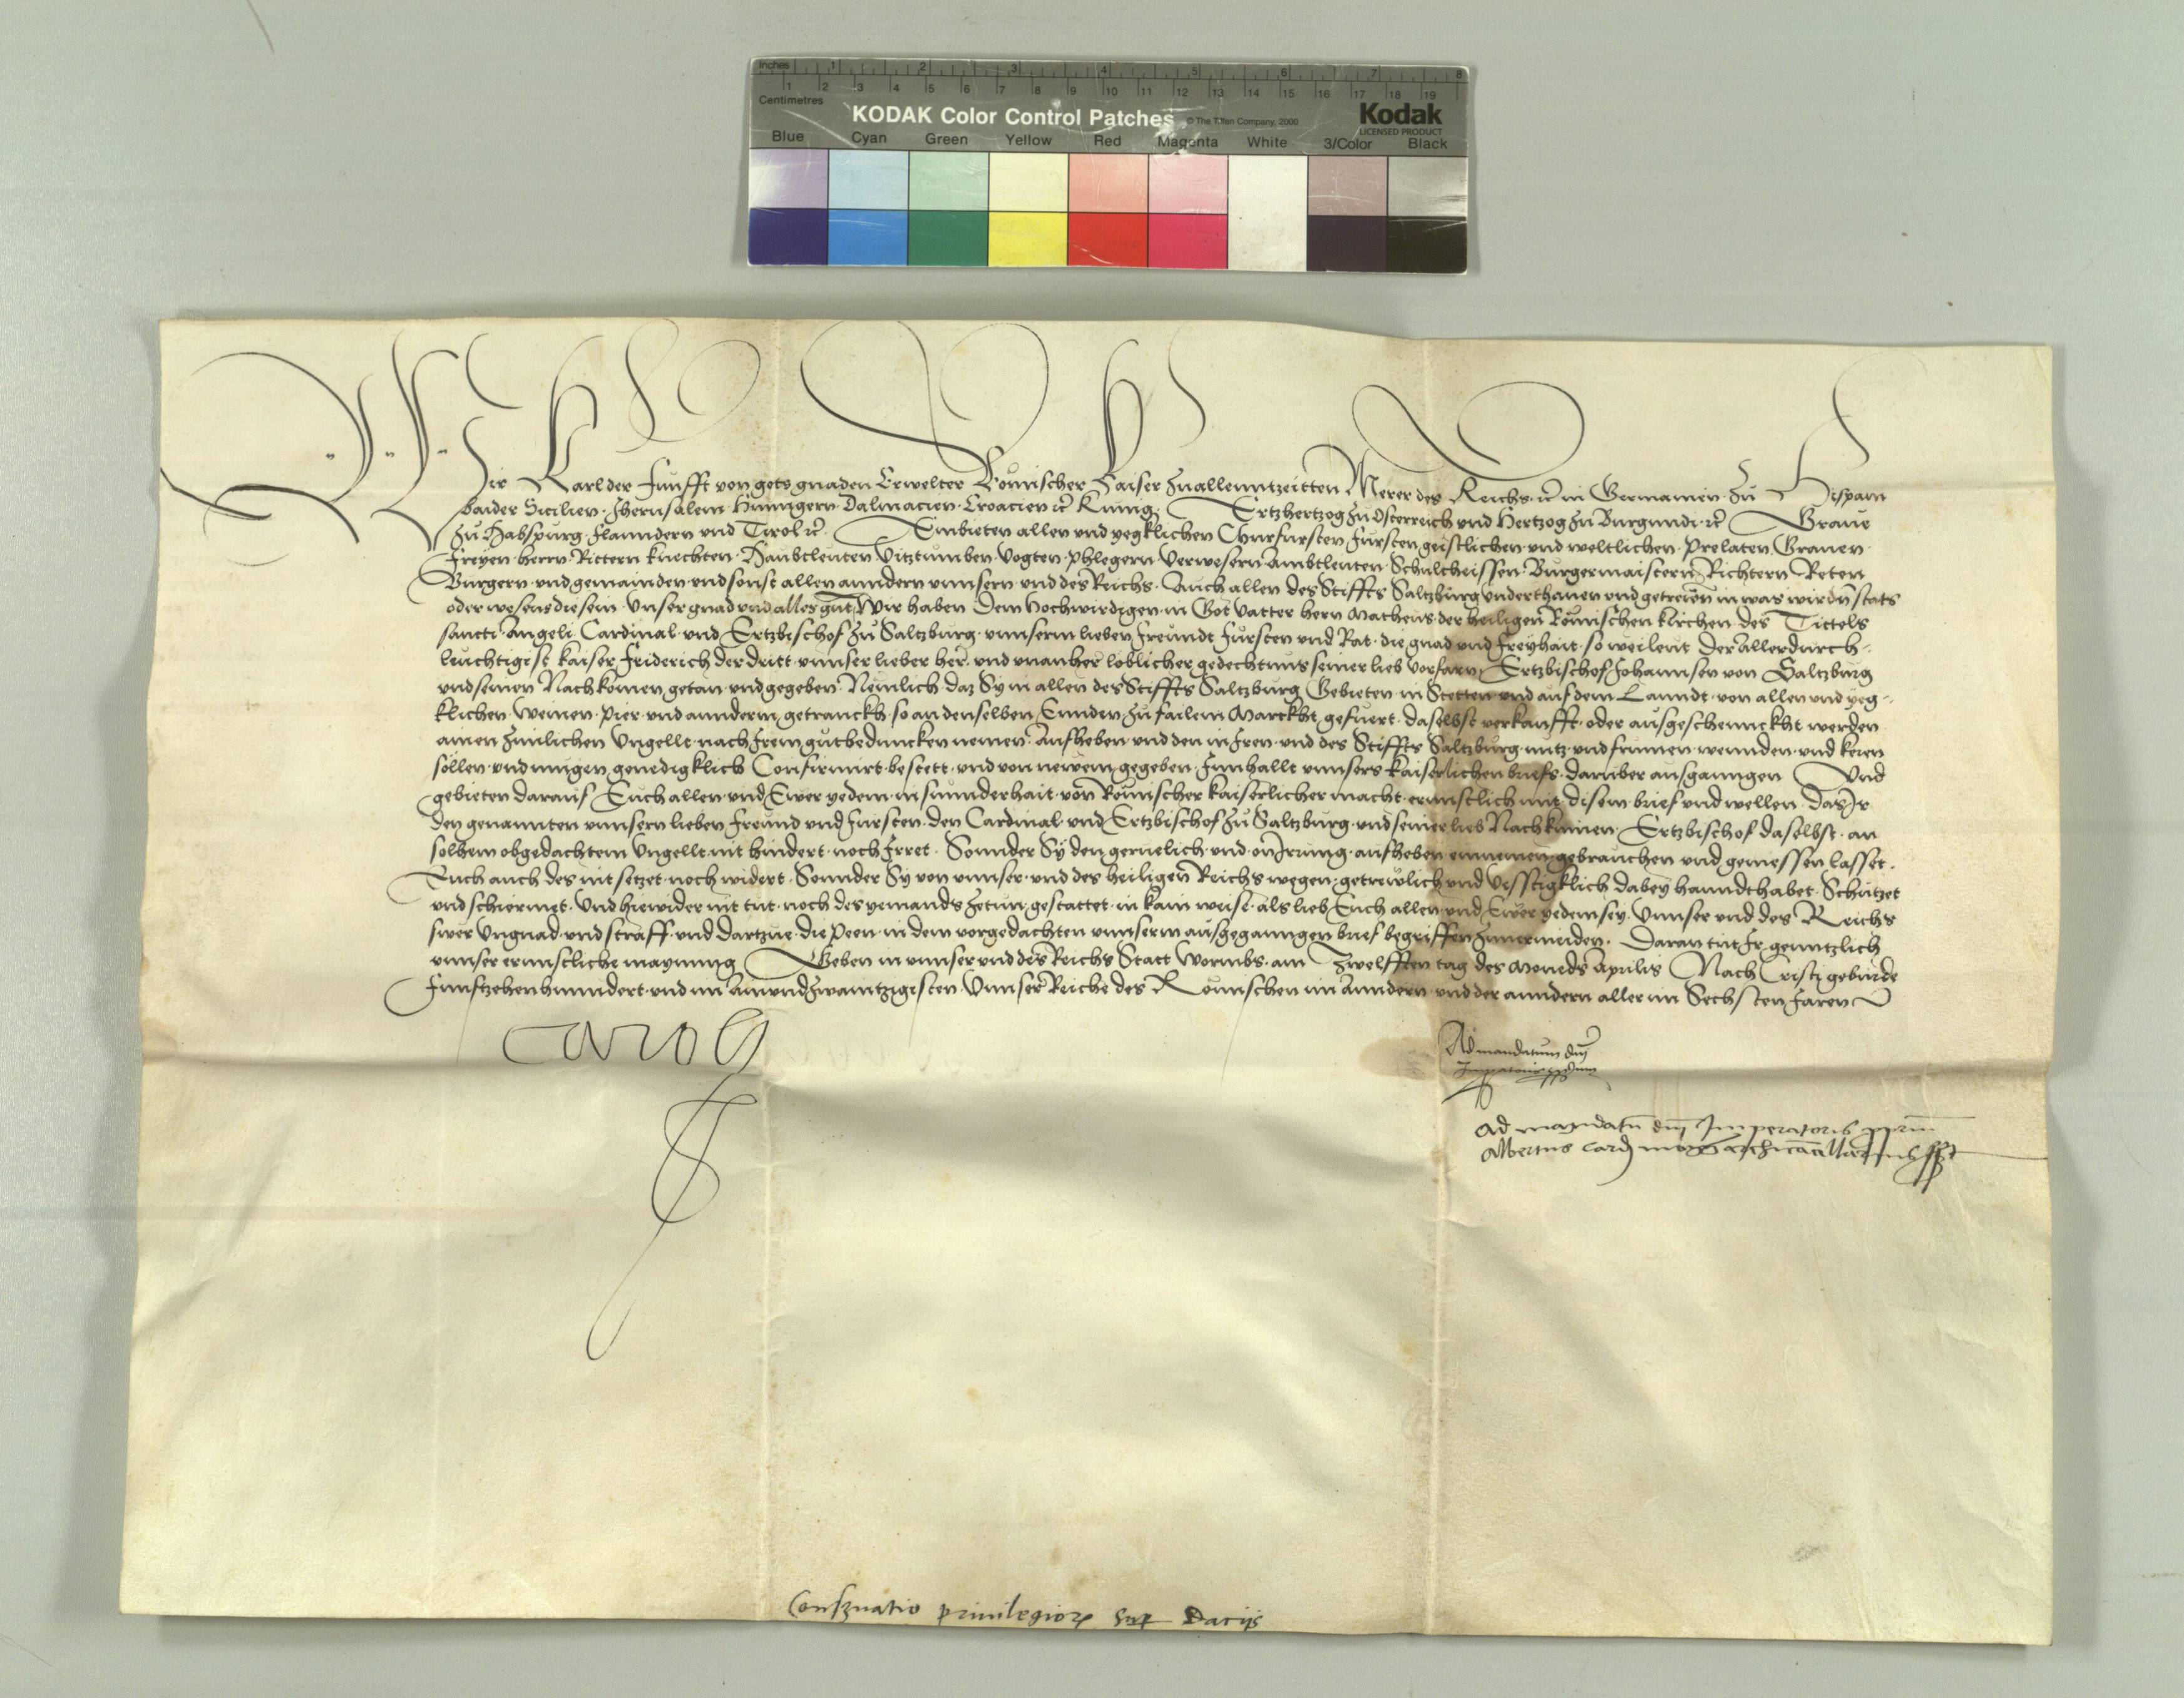 Inches 1 2 3 4 5 6 7 8
1 2 3 4 5 6 7 8 9 10 11 12 13 14 15 16 17 18 19
Centimetres
KODAK Color Control Patches © The Tiffen Company, 2000 Kodak
LICENSED PRODUCT
Blue Cyan Green Yellow Red Magenta White 3/Color Black
Wir Karl der Funfft von gots gnaden Erwelter Römischer Kaiser zuallenntzeitten Merer des Reichs ꝛc̃ in Germanien zů Hispani
baider Sicilien Jherusalem Hunngern Dalmacien Croacien ꝛc̃ Kunig Ertzhertzog zů Osterreich und Hertzog zů Burgundi ꝛc̃ Grave
zů Habspurg Flanndern und Tirol ꝛc̃ Embieten allen und yegklichen Churfursten Fursten geistlichen und weltlichen Prelaten Graven
Freyen herrn Rittern knechten Haubtleuten Vitztumben Vogten Phlegern Verwesern Ambtleuten Schultheissen Burgermaistern Richtern Reten
Burgern und gemainden und sonst allen anndern unnsern und des Reichs Auch allen des Stiffts Saltzburg underthanen und getreuen in was wirdn̄ stats
oder wesens die sein Unser gnad und alles gůt Wir haben Dem Hochwirdigen in Got vatter hern Matheus der heiligen Römischen kirchen des Tittels
sancti Angeli Cardinal und Ertzbischof zů Saltzburg unnserm lieben freundt Fursten und Rat die gnad und freyhait so weilent Der Allerdurch-
leuchtigist kaiser Friderich der dritt unnser lieber her und uranher loblicher gedechtnus seiner lieb vorfarn Ertzbischof Johannsen von Saltzburg
und seinen Nachkomen getan und gegeben Nemlich daz Sy in allen des Stiffts Saltzburg Gebieten in Stetten und auf dem Lanndt von allen und yeg-
klichen Weinen Pier und annderm getranckh so an denselben Ennden zů failem Marckht gefuert daselbst verkaufft oder ausgeschennckht werden
ainen zimlichen Ungellt nach Irem gůtbeduncken nemen Aufheben und den in Iren und des Stiffts Saltzburg nutz und frumen wennden und keren
sollen und mugen genedigklich Confirmirt bestett und von newem gegeben Innhallt unnsers kaiserlichen briefs darüber ausganngen Und
gebieten darauf Euch allen und Ewer yedem in sunnderhait von Römischer kaiserlicher macht ernnstlich mit disem brief und wellen Das Ir
den genannten unnsern lieben Freund und Fursten den Cardinal und Ertzbischof zů Saltzburg und seiner lieb Nachkumen Ertzbischof daselbst an
solhem obgedachtem Ungellt nit hindert noch Irret Sonnder Sy den geruelich und on Irrung aufheben einnemen gebrauchen und geniessen lasset
Euch auch des nit setzet noch widert Sonnder Sy von unnser und des heiligen Reichs wegen getrewlich und vesstigklich dabey hanndthabet Schützet
und schiermet Und hiewider nit tut noch des yemands zetun gestattet in kain weise als lieb Euch allen und Ewer yedem sey Unnser und des Reichs
swer Ungnad und straff und dartzue die Peen in dem vorgedachten unnserm ausgeganngen brief begriffen zuvermeiden Daran tut Ir genntzlich
unnser ernnstliche maynung Geben in unnser und des Reichs Statt Wormbs am Zwelfften tag des Moneds Aprilis Nach Cristi geburde
Funfzehenhunndert und im Ainundzwaintzigisten Unnser Reiche des Römischen im Anndern und der anndern aller im Sechsten Jaren
Carolꝰ
Ad mandatum dn̄i
Imperatoris
Ad mandatū dn̄i Imperatoris ppriū
Albertus Card Mog Archicancellarius sst
Confirmatio privilegiorꝫ sup Dacijs